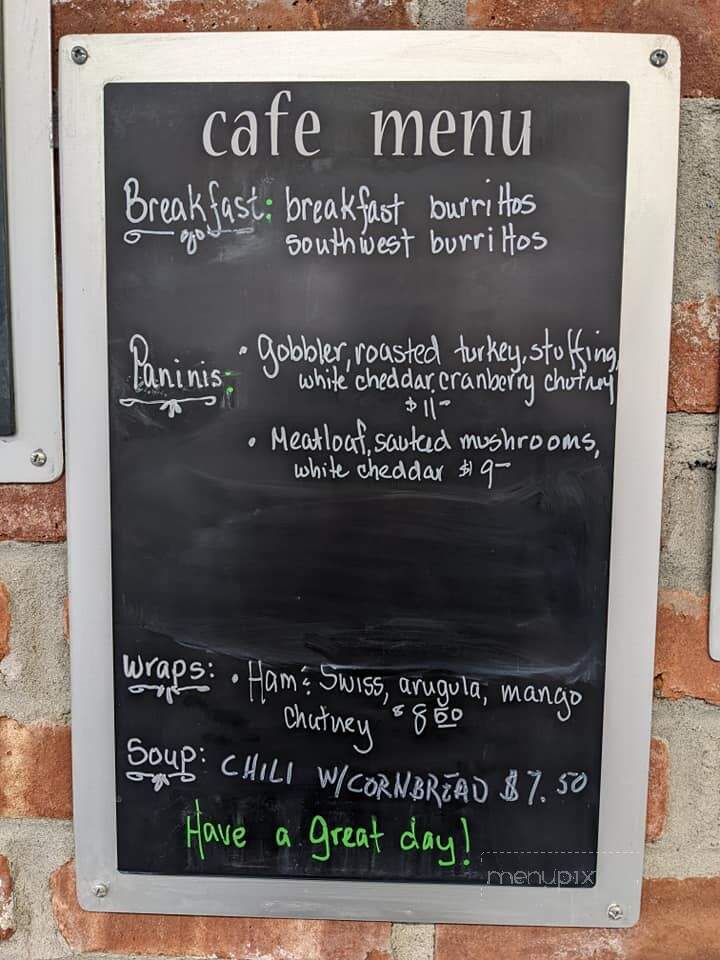 cafe menu
Breakfast: breakfast burritos
southwest burritos
Paninis: • Gobbler, roasted turkey, stuffing,
white cheddar, cranberry chutney
$11-
• Meatloaf, sauted mushrooms,
white cheddar $9-
Wraps: • Ham & Swiss, arugula, mango
Chutney $8 50
Soup: CHILI W/CORNBREAD $7.50
Have a great day!
menupix